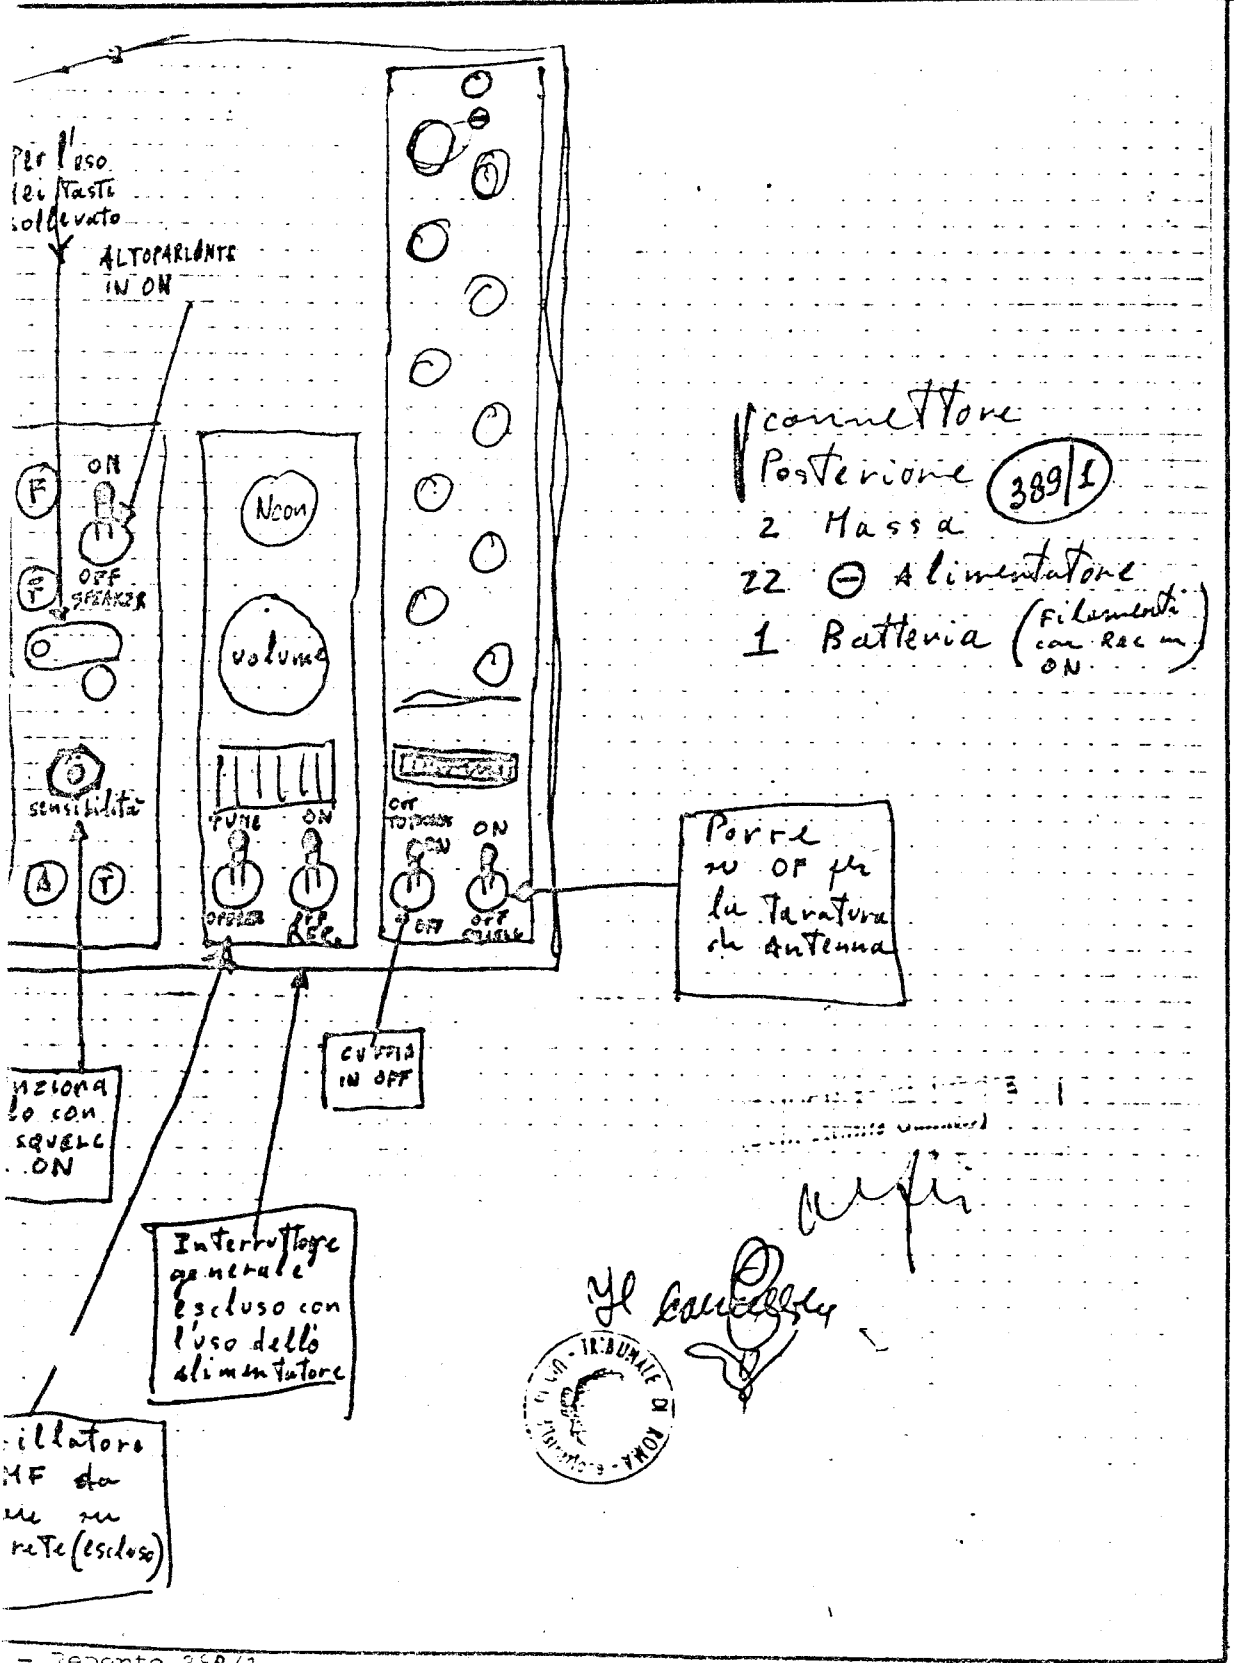 Per l'uso
dei Tasti
sollevato
ALTOPARLANTE
IN ON
F
ON
OFF
SPEAKER
F
sensibilità
A
T
Neon
volume
TUNE
ON
OPERER
OFF
REC.
OFF
ON
OFF
ON
OFF
SQUELC
connettore
Posteriore
389/1
2 Massa
22 ⊖ Alimentatore
1 Batteria (Filamenti
con Rec in
ON)
Porre
su OF per
la Taratura
di Antenna
CUFFIA
IN OFF
nziona
lo con
SQUELC
ON
Interruttore
generale
escluso con
l'uso dello
alimentatore
illatore
MF da
su
rete (escluso)
Il cancelliere
TRIBUNALE DI ROMA
- Reperto